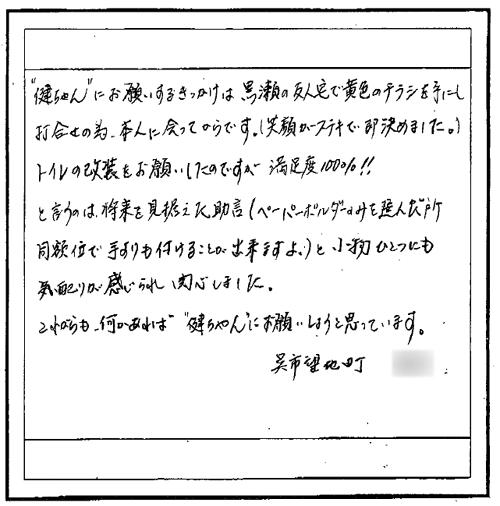 "健ちゃん"にお願いするきっかけは黒瀬の友人宅で黄色のチラシを手にし
打合せの為、本人に会ってからです。(笑顔がステキで即決めました。)
トイレの改装をお願いしたのですが満足度100%!!
と言うのは、将来を見据えた助言(ペーパーホルダーのみを選んだ所
同額位で手すりも付けることが出来ますよ。)と小物ひとつにも
気配りが感じられ関心しました。
これからも、何かあれば"健ちゃん"にお願いしようと思っています。
呉市望地町